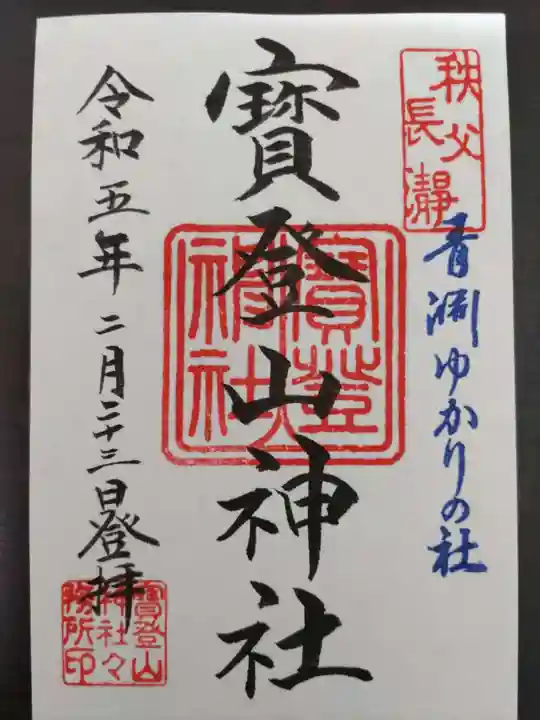 秩父
長瀞
青淵ゆかりの社
寳登山神社
令和五年二月二十三日登拝
寳登山
神社々
務所印